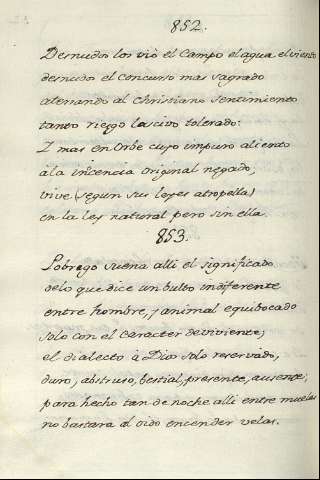 852.
Desnudos los viò el Campo el agua el viento
desnudo el concurso mas sagrado
aterrando al Christiano sentimiento
tanto riesgo lascivo tolerado:
I mas en Orbe cuyo impuro aliento
à la inocencia original negado,
vive (segun sus leyes atropella)
en la ley natural pero sin ella.
853.
Lobrego suena alli el significado
de lo que dice un bulto indiferente
entre hombre, y animal equibocado
solo con el caracter de viviente;
el dialecto à Dios solo reservado,
duro, abstruso, bestial, presente, ausente;
para hecho tan de noche alli entre muelas
no bastara al oido encender velas.